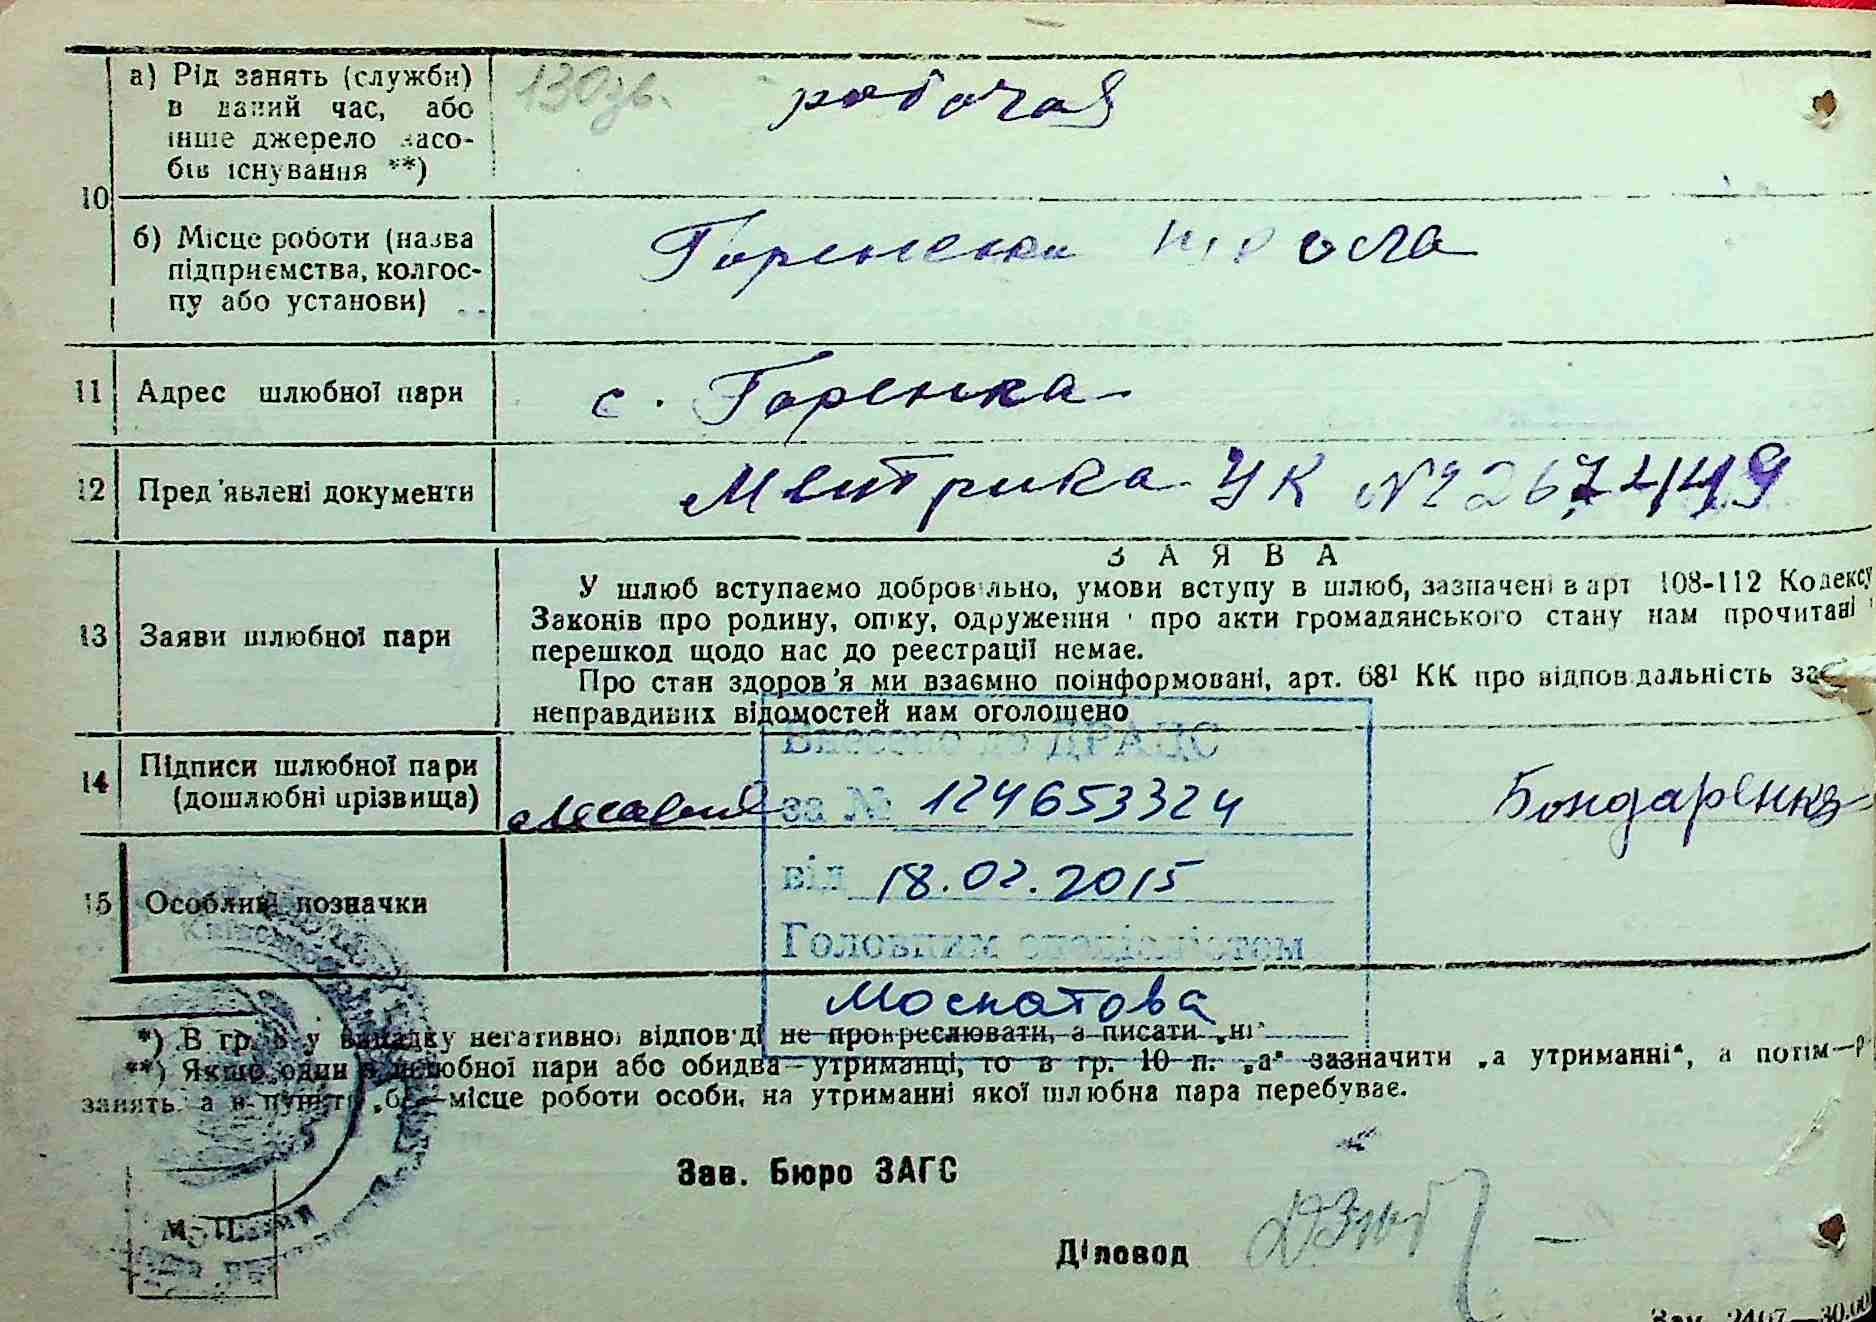 а) Рід занять (служби)
в даний час, або
інше джерело засо-
бів існування **)
130зв. рабочая
10
б) Місце роботи (назва
підприємства, колгос-
пу або установи)
Горенская школа
11 Адрес шлюбної пари с. Горенка
12 Пред'явлені документи Метрика УК №
13 Заяви шлюбної пари
ЗАЯВА
У шлюб вступаємо добровільно, умови вступу в шлюб, зазначені в арт 108-112 Кодексу
Законів про родину, опіку, одруження і про акти громадянського стану нам прочитані і
перешкод щодо нас до реєстрації немає.
Про стан здоров'я ми взаємно поінформовані, арт. 68¹ КК про відповідальність за
неправдивих відомостей нам оголошено
14 Підписи шлюбної пари
(дошлюбні прізвища)
Бондаренко
Внесено до ДРАЦС
за № 124653324
від 18.02.2015
Головним спеціалістом
Москатова
15 Особливі позначки
*) В гр. 8 у випадку негативної відповіді не прокреслювати, а писати „ні"
**) Якщо один з шлюбної пари або обидва—утриманці, то в гр. 10 п. „а" зазначити „а утриманні", а потім—р
занять, а в пункті „б"—місце роботи особи, на утриманні якої шлюбна пара перебуває.
Зав. Бюро ЗАГС
М. П.
Діловод
Зам. 2407—30.00